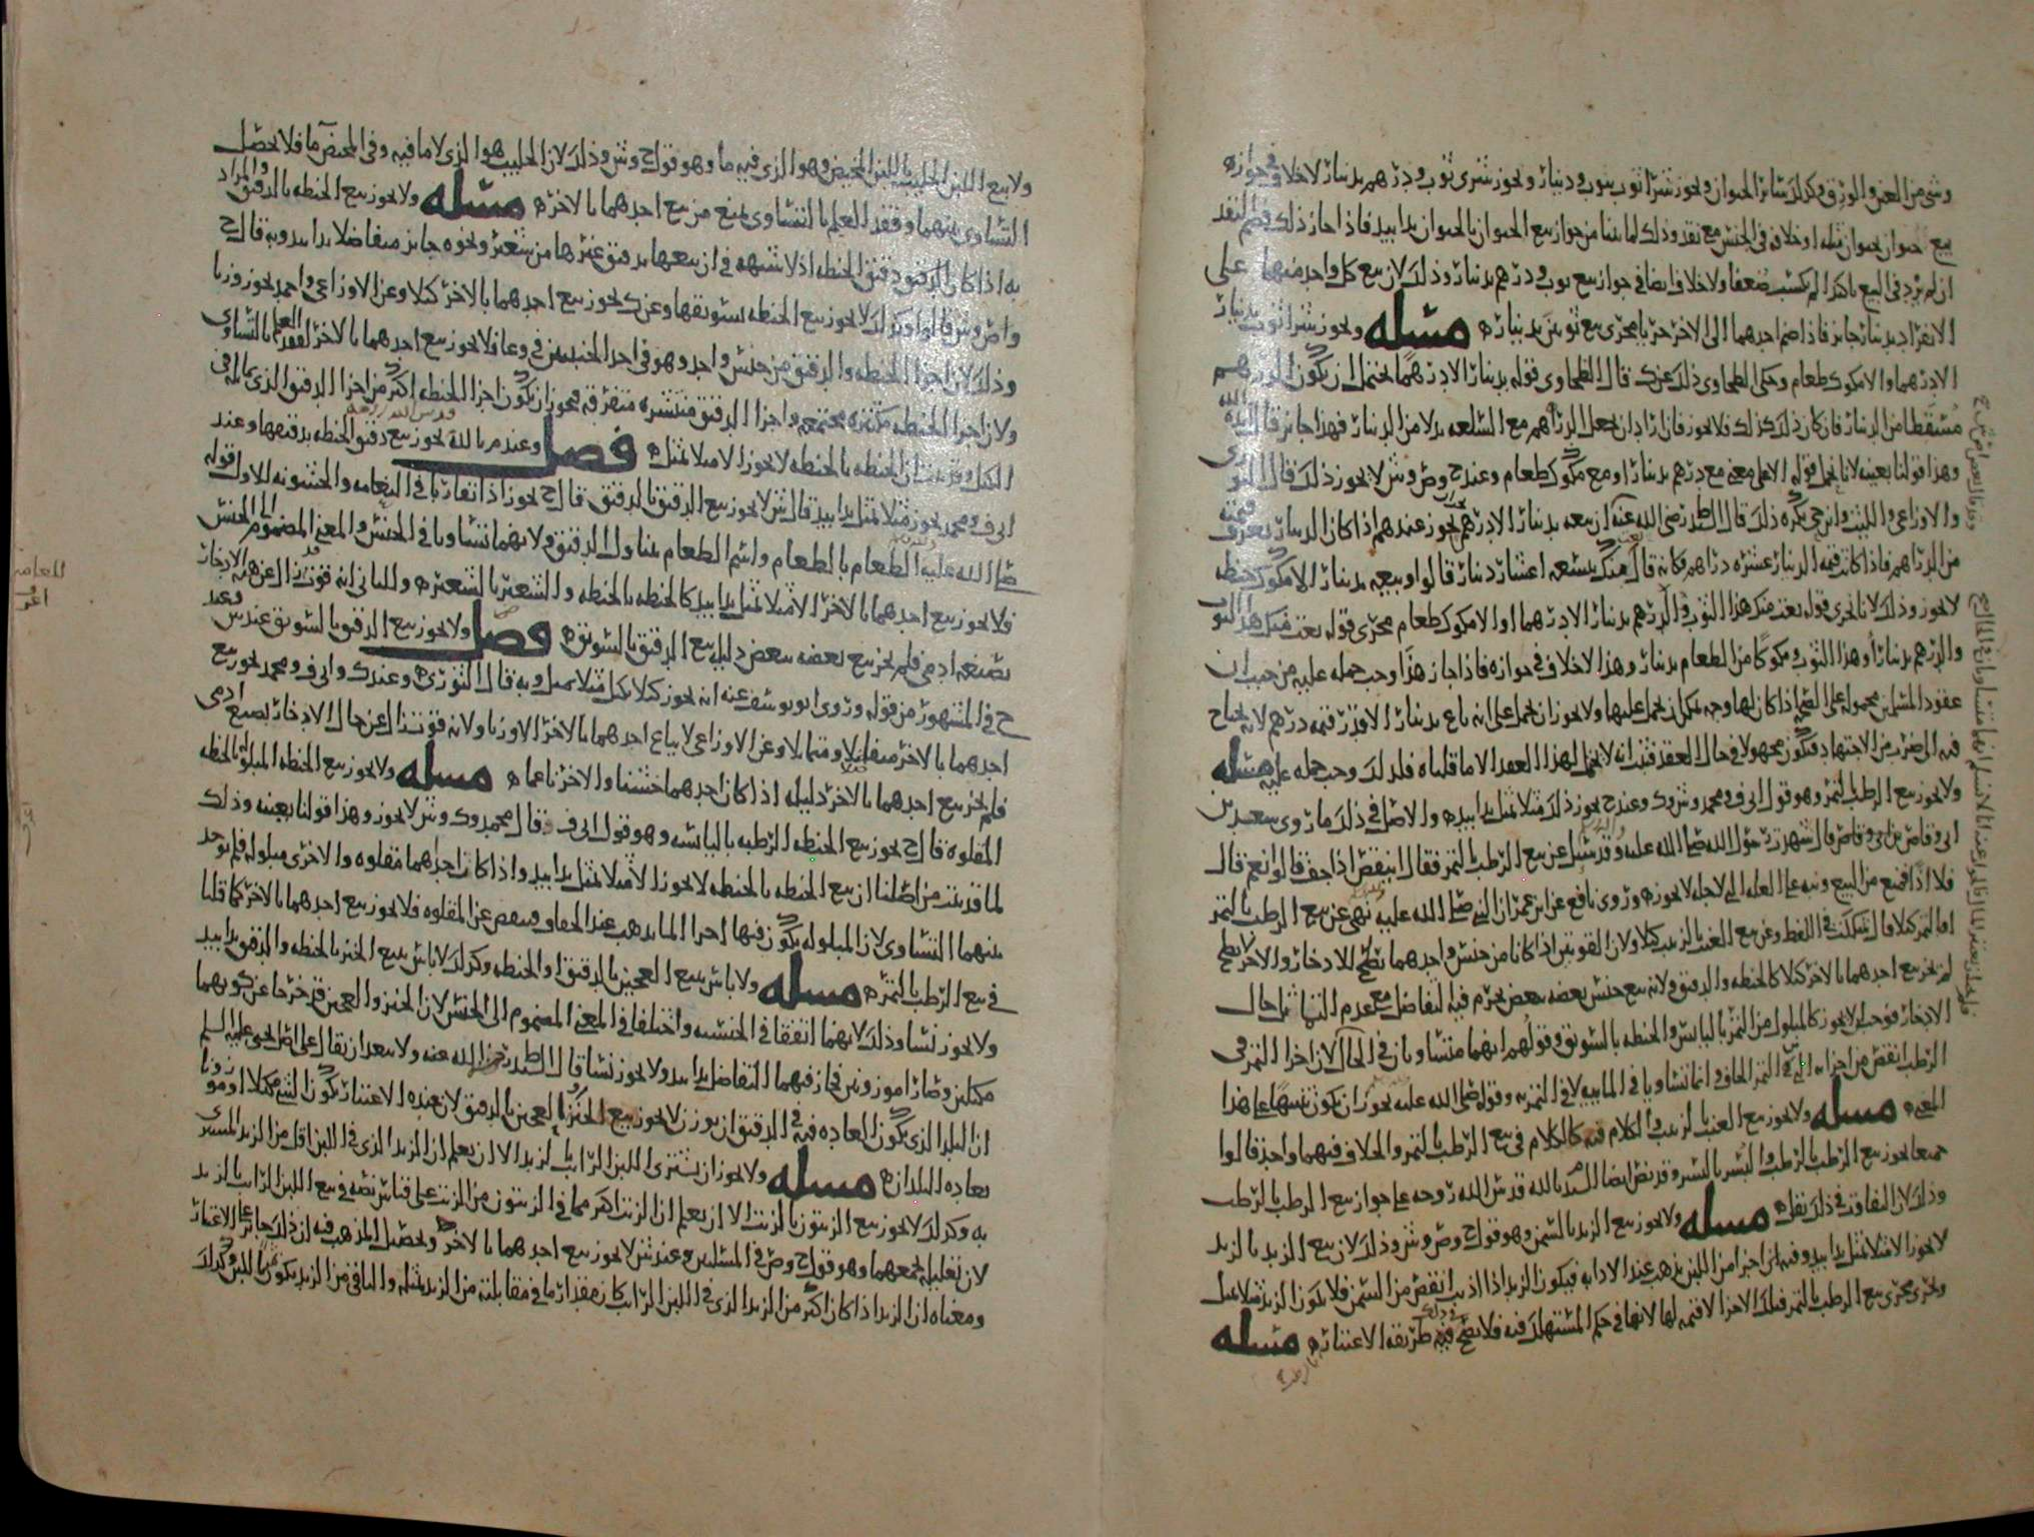 وشى من العين والورق وكذلك سائر الحيوان ويجوز شرا ثوب بثوب ودينار ويجوز شرى ثوب ودرهم بدينار لا خلاف في جوازه
بيع حيوان بحيوان مثله او خلافه في الجنس مع نقد وذلك لما بينا من جواز بيع الحيوان بالحيوان يدا بيد فاذا جاز ذلك فضم النقد
ان لم يزد في البيع تاكيدا لم يكسبه ضعفا ولا خلاف ايضا في جواز بيع ثوب ودرهم بدينار وذلك لان بيع كل واحد منهما على
الانفراد بدينار جايز فاذا ضم احدهما الى الاخر جرى مجرى بيع ثوبين بدينار ه مسله ويجوز شرا ثوب بدينار
الا درهما والا مكوك طعام وحكى الطحاوى ذلك عن ك قال الطحاوى قوله بدينار الا درهما يحتمل ان يكون الدرهم
مسقطا من الدينار فان كان ذلك كذلك فلا يجوز فان اراد ان يجعل الدراهم مع السلعه بدلا من الدينار فهذا جايز قال
وهذا قولنا بعينه لانا نحمل قوله الا على معنى مع درهم بدينار او مع مكوك طعام وعند ح وص وش لا يجوز ذلك قال الثورى
والاوزاعى والليث وابن حى يكره ذلك قال السيد رضى الله عنه ان بيعه بدينار الا درهم يجوز عندهم اذا كان الدينار يعرف قيمته
من الدراهم فاذا كانت قيمه الدينار عشره دراهم فكانه قال بعت منك بتسعه اعشار دينار قالوا وبيعه بدينار الا مكوك حنطه
لا يجوز وذلك لانا نجرى قوله بعت منك هذا الثوب والدرهم بدينار الا درهما او الا مكوك طعام مجرى قوله بعت منك هذا الثوب
والدرهم بدينار او هذا الثوب ومكوكا من الطعام بدينار وهذا لا خلاف في جوازه فاذا جاز هذا وجب حمله عليه من حيث ان
عقود المسلمين محموله على الصحه اذا كان لها وجه يمكن ان تحمل عليها ولا يجوز ان نحمل على انه باع بدينار الا قدر قيمه درهم لانه يحتاج
فيه الى ضرب من الاجتهاد فيكون مجهولا في حال العقد فثبت انه لا يحمل لهذا العقد الا ما قلناه فلذلك وجب حمله عليه مسله
ولا يجوز بيع الرطب بالتمر وهو قول ابى ف ومحمد وش وك وعند ح يجوز ذلك مثلا بمثل يدا بيد ه والاصل في ذلك ما روى سعد بن
ابى وقاص قال شهدت رسول الله صلى الله عليه وقد سئل عن بيع الرطب بالتمر فقال اينقص اذا جف قالوا نعم قال
فلا اذا فمنع من البيع ونبه على العله التى لاجله لا يجوز ه وروى نافع عن ابن عمر ان النبى صلى الله عليه نهى عن بيع الرطب بالتمر
اما التمر كيلا قال شككت في اللفظ وعن بيع العنب بالزبيب كيلا ولان القوتين اذا كانا من جنس واحد احدهما يصلح للادخار والاخر لا يصلح
لم يجز بيع احدهما بالاخر كيلا كالحنطه والدقيق ولانه بيع جنس بعضه ببعض يحرم فيه التفاضل مع عدم التماثل حال
الادخار فوجب ان لا يجوز كالمبلول من التمر باليابس والحنطه بالسويق وقولهم انهما متساويان في الحال لان اجزا التمر في
الرطب انقص من اجزا التى في التمر الجاف وانما تساويا في المائيه لا في التمريه وقوله صلى الله عليه يجوز ان يكون تنبيها على هذا
المعنى ه مسله ولا يجوز بيع العنب بالزبيب والكلام فيه كالكلام في بيع الرطب بالتمر والخلاف فيهما واحد قالوا
جميعا يجوز بيع الرطب بالرطب والبسر بالبسر وقد نص ايضا السيد بالله قدس الله روحه على جواز بيع الرطب بالرطب
وذلك لان التفاوت في ذلك يقل ه مسله ولا يجوز بيع الزبد بالسمن وهو قول ح وص وش وذلك لان بيع الزبد بالزبد
لا يجوز الا مثلا بمثل يدا بيد وفيه اذا اجزا من اللبن يذهب عند الاذابه فيكون الزبد اذا اذيب انقص من السمن فلا يكون الزبد مثلا بمثل
وجرى مجرى بيع الرطب بالتمر فتلك الاجزا لا قيمه لها لانها في حكم المستهلك فيه فلا يصح فيه طريقه الاعتبار ه مسله
ولا بيع اللبن الحليب باللبن المخيض وهو الذى فيه ما وهو قول ح وش وذلك لان الحليب هو الذى لا ما فيه وفي المخيض ما فلا يحصل
التساوى بينهما وفقد العلم بالتساوى يمنع من بيع احدهما بالاخر ه مسله ولا يجوز بيع الحنطه بالدقيق والمراد
به اذا كان الدقيق دقيق الحنطه اذ لا شبهه في ان بيعها بدقيق غيرها من شعير ونحوه جايز متفاضلا يدا بيد وبه قال ح
واص وش قالوا وكذلك لا يجوز بيع الحنطه بسويقها وعن ك يجوز بيع احدهما بالاخر كيلا وعن الاوزاعى واحمد يجوز وزنا
وذلك لان اجزا الحنطه والدقيق من جنس واحد وهو في احد الجنسين في وعا فلا يجوز بيع احدهما بالاخر لفقد العلم بالتساوى
ولان اجزا الحنطه مكتنزه مجتمعه واجزا الدقيق منتشره متفرقه فيجوز ان يكون اجزا الحنطه اكثر من اجزا الدقيق الذى يماثله في
الكيل وقد ثبت ان الحنطه بالحنطه لا يجوز الا مثلا بمثل ه فصل وعند م بالله يجوز بيع دقيق الحنطه بدقيقها وعند
ابى ف ومحمد يجوز مثلا بمثل يدا بيد قال ش لا يجوز بيع الدقيق بالدقيق قال ح يجوز اذا تقاربا في النعامه والخشونه للاول قوله
صلى الله عليه الطعام بالطعام واسم الطعام يتناول الدقيق ولانهما تساويا في الجنس والمعنى المضموم الى الجنس
فلا يجوز بيع احدهما بالاخر الا مثلا بمثل يدا بيد كالحنطه بالحنطه والشعير بالشعير ه وللثانى انه قوت زال عن هيه الادخار
بصنعه ادمى فلم يجز بيع بعضه ببعض دليله بيع الدقيق بالسويق ه فصل ولا يجوز بيع الدقيق بالسويق عند ش وعند
ح في المشهور من قوله وروى ابو يوسف عنه انه يجوز كيلا بكيل مثلا بمثل وبه قال الثورى ه وعند ك وابى ف ومحمد يجوز بيع
احدهما بالاخر متفاضلا ومتماثلا وعن الاوزاعى لا يباع احدهما بالاخر الا وزنا ولانه قوت زال عن حال الادخار بصنع ادمى
فلم يجز بيع احدهما بالاخر دليله اذا كان احدهما خشنا والاخر ناعما ه مسله ولا يجوز بيع الحنطه المبلوله بالحنطه
المقلوه قال ح يجوز بيع الحنطه الرطبه باليابسه وهو قول ابى ف وقال محمد وك وش لا يجوز وهذا قولنا بعينه وذلك
لما قد ثبت من اصلنا ان بيع الحنطه بالحنطه لا يجوز الا مثلا بمثل يدا بيد واذا كانت احداهما مقلوه والاخرى مبلوله فلم يوجد
بينهما التساوى لان المبلوله يكون فيها اجزا الما يذهب عند الجفاف وينقص عن المقلوه فلا يجوز بيع احدهما بالاخر كما قلنا
في بيع الرطب بالتمر ه مسله ولا باس ببيع العجين بالدقيق او الحنطه وكذلك لا باس ببيع الخبز بالحنطه والدقيق يدا بيد
ولا يجوز نسا وذلك لانهما اتفقا في الجنسيه واختلفا في المعنى المضموم الى الجنس لان الخبز والعجين قد خرجا عن كونهما
مكيلين وصارا موزونين فجاز فيهما التفاضل يدا بيد ولا يجوز نسا قال السيد رضى الله عنه ولا يبعد ان يقال على اصل يحيى عليه السلم
ان البلد الذى يكون العاده فيه في الدقيق ان يوزن لا يجوز بيع الخبز او العجين بالدقيق لان عنده الاعتبار بكون الشى مكيلا او موزونا
بعاده البلدان ه مسله ولا يجوز ان يشترى اللبن الرايب بالزبد الا ان يعلم ان الزبد الذى في اللبن اقل من الزبد المشترى
به وكذلك لا يجوز بيع الزيتون بالزيت الا ان يعلم ان الزيت اكثر مما في الزيتون من الزيت على قياس نصه في بيع اللبن الرايب بالزبد
لان تعليله يجمعهما وهو قول ح وص في المسلتين وعند ش لا يجوز بيع احدهما بالاخر وتحصيل المذهب فيه ان ذلك جايز على الاعتبار
ومعناه ان الزبد اذا كان اكثر من الزبد الذى في اللبن الرايب كان مقدار ما في مقابلته من الزبد بمثله والباقى من الزبد يكون ثمن اللبن وكذلك